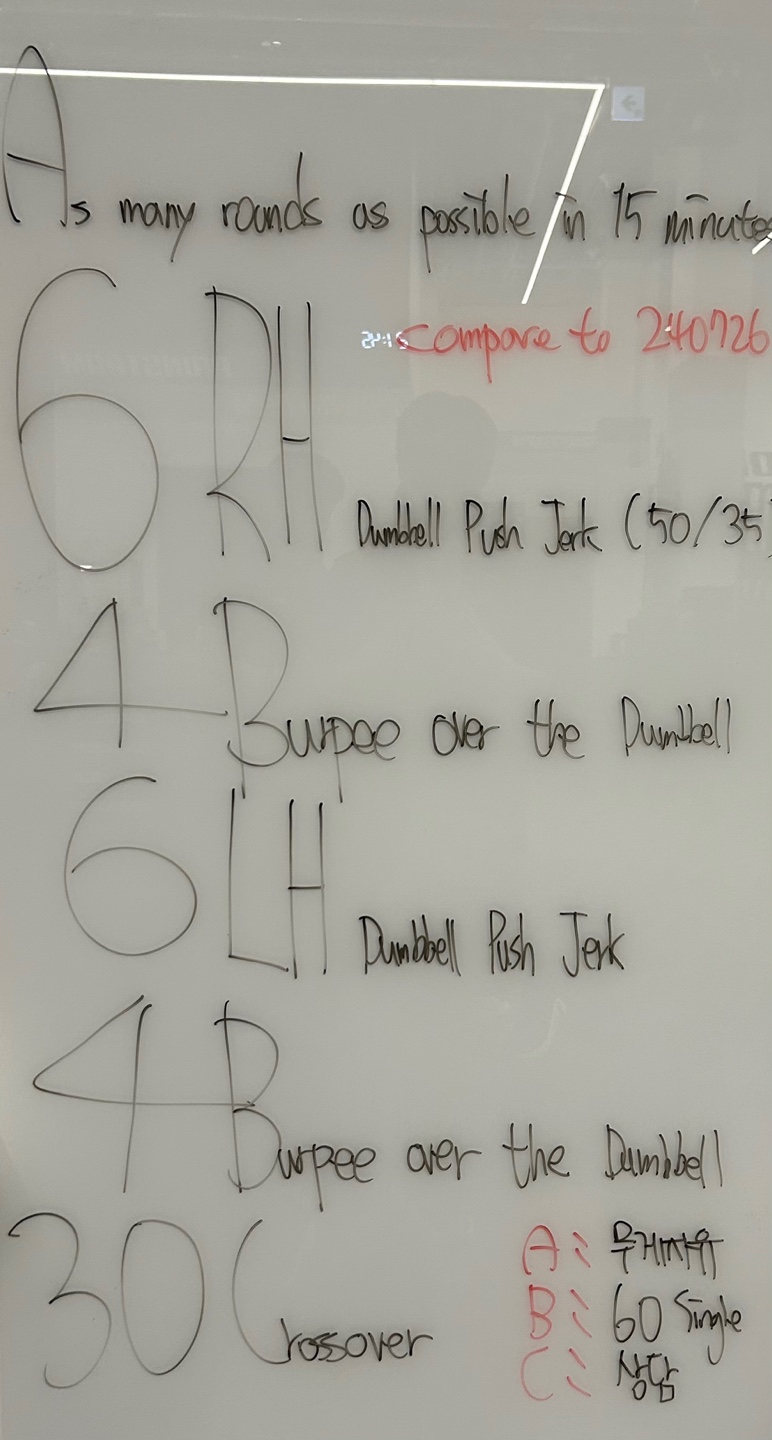 As many rounds as possible in 15 minutes
compare to 240726
6 RH Dumbbell Push Jerk (50/35)
4 Burpee over the Dumbbell
6 LH Dumbbell Push Jerk
4 Burpee over the Dumbbell
30 Crossover
A: 무게자유
B: 60 Single
C: 상담